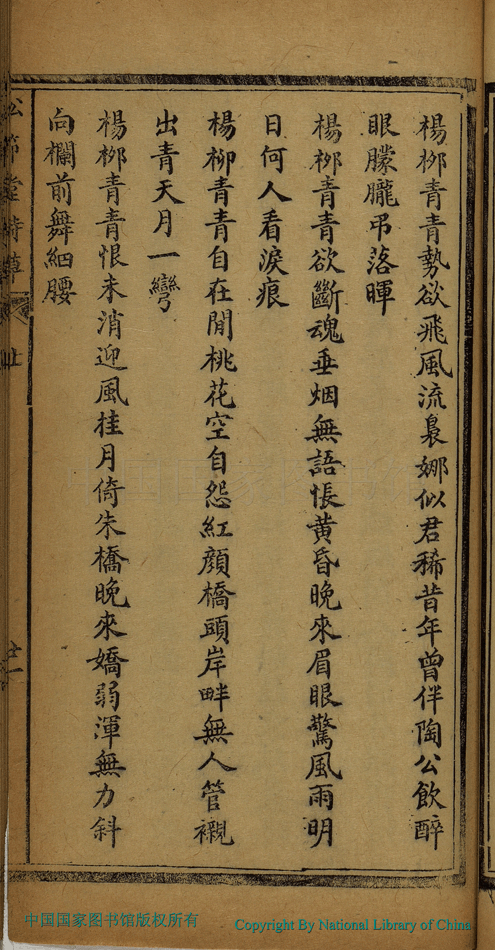 楊柳青青勢欲飛風流裊娜似君稀昔年曾伴陶公飲醉
眼朦朧弔落暉
楊柳青青欲斷魂垂烟無語悵黄昏晚來眉眼驚風雨明
日何人看淚痕
楊柳青青自在間桃花空自怨紅顔橋頭岸畔無人管襯
出青天月一彎
楊柳青青恨未消迎風桂月倚朱橋晚來嬌弱渾無力斜
向欄前舞細腰
中国国家图书馆版权所有
Copyright By National Library of China